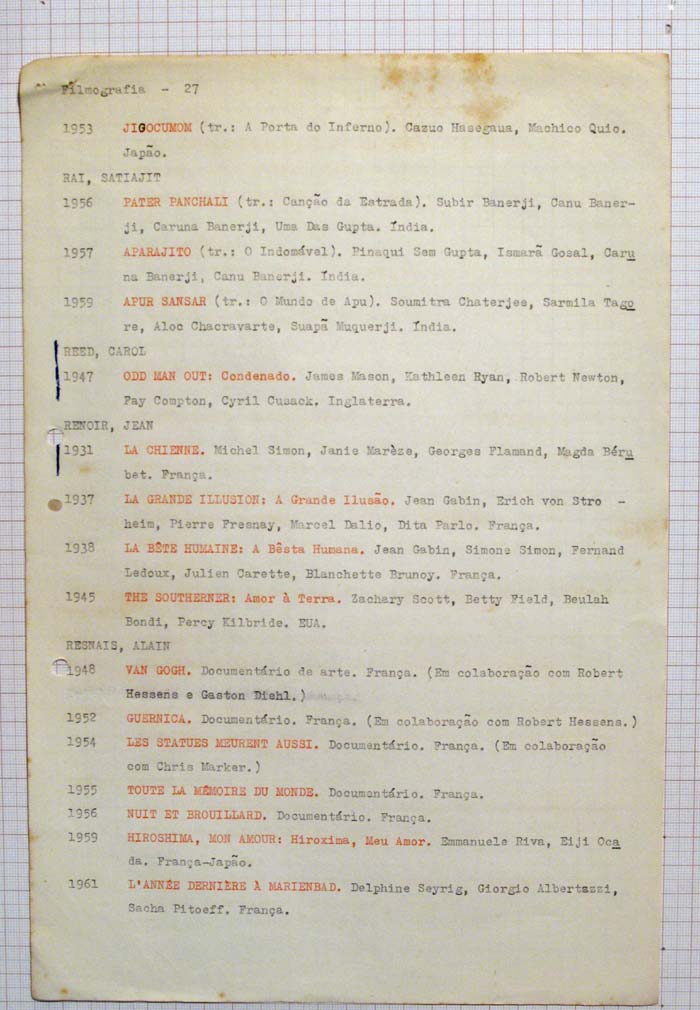 Filmografia - 27
1953 JIGOCUMOM (tr.: A Porta do Inferno). Cazuo Hasegaua, Machico Quio.
Japão.
RAI, SATIAJIT
1956 PATER PANCHALI (tr.: Canção da Estrada). Subir Banerji, Canu Baner-
ji, Caruna Banerji, Uma Das Gupta. Índia.
1957 APARAJITO (tr.: O Indomável). Pinaqui Sem Gupta, Ismarã Gosal, Caru
na Banerji, Canu Banerji. Índia.
1959 APUR SANSAR (tr.: O Mundo de Apu). Soumitra Chaterjee, Sarmila Tago
re, Aloc Chacravarte, Suapã Muquerji. Índia.
REED, CAROL
1947 ODD MAN OUT: Condenado. James Mason, Kathleen Ryan, Robert Newton,
Fay Compton, Cyril Cusack. Inglaterra.
RENOIR, JEAN
1931 LA CHIENNE. Michel Simon, Janie Marèze, Georges Flamand, Magda Béru
bet. França.
1937 LA GRANDE ILLUSION: A Grande Ilusão. Jean Gabin, Erich von Stro -
heim, Pierre Fresnay, Marcel Dalio, Dita Parlo. França.
1938 LA BÊTE HUMAINE: A Bêsta Humana. Jean Gabin, Simone Simon, Fernand
Ledoux, Julien Carette, Blanchette Brunoy. França.
1945 THE SOUTHERNER: Amor à Terra. Zachary Scott, Betty Field, Beulah
Bondi, Percy Kilbride. EUA.
RESNAIS, ALAIN
1948 VAN GOGH. Documentário de arte. França. (Em colaboração com Robert
Hessens e Gaston Diehl.)
1952 GUERNICA. Documentário. França. (Em colaboração com Robert Hessens.)
1954 LES STATUES MEURENT AUSSI. Documentário. França. (Em colaboração
com Chris Marker.)
1955 TOUTE LA MÉMOIRE DU MONDE. Documentário. França.
1956 NUIT ET BROUILLARD. Documentário. França.
1959 HIROSHIMA, MON AMOUR: Hiroxima, Meu Amor. Emmanuele Riva, Eiji Oca
da. França-Japão.
1961 L'ANNÉE DERNIÈRE À MARIENBAD. Delphine Seyrig, Giorgio Albertazzi,
Sacha Pitoeff. França.